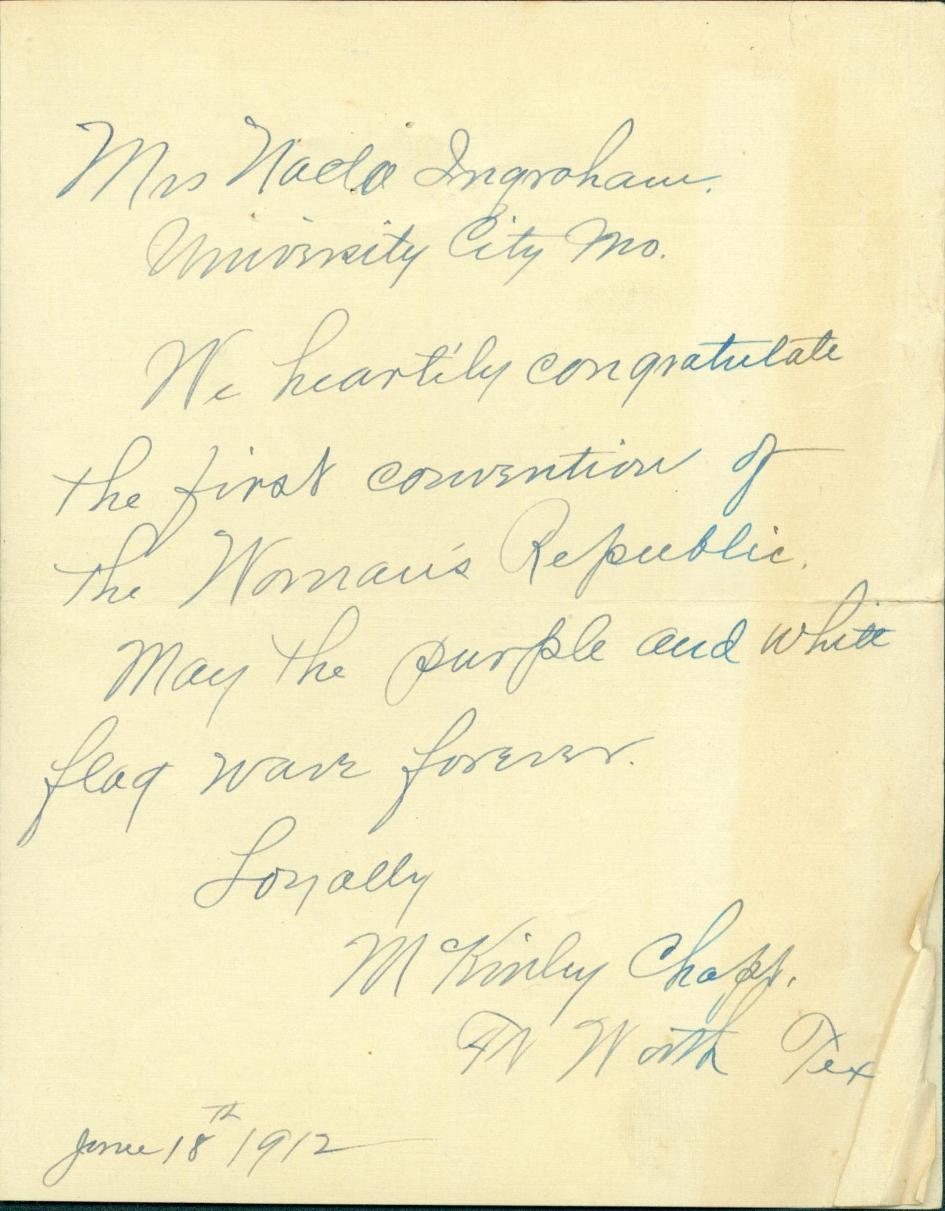 Mrs Nada Ingraham.
University City Mo.
We heartily congratulate
the first convention of
the Woman's Republic.
May the purple and white
flag wave forever.
Loyally
McKinley Chapt.
Ft Worth Tex
June 18th 1912